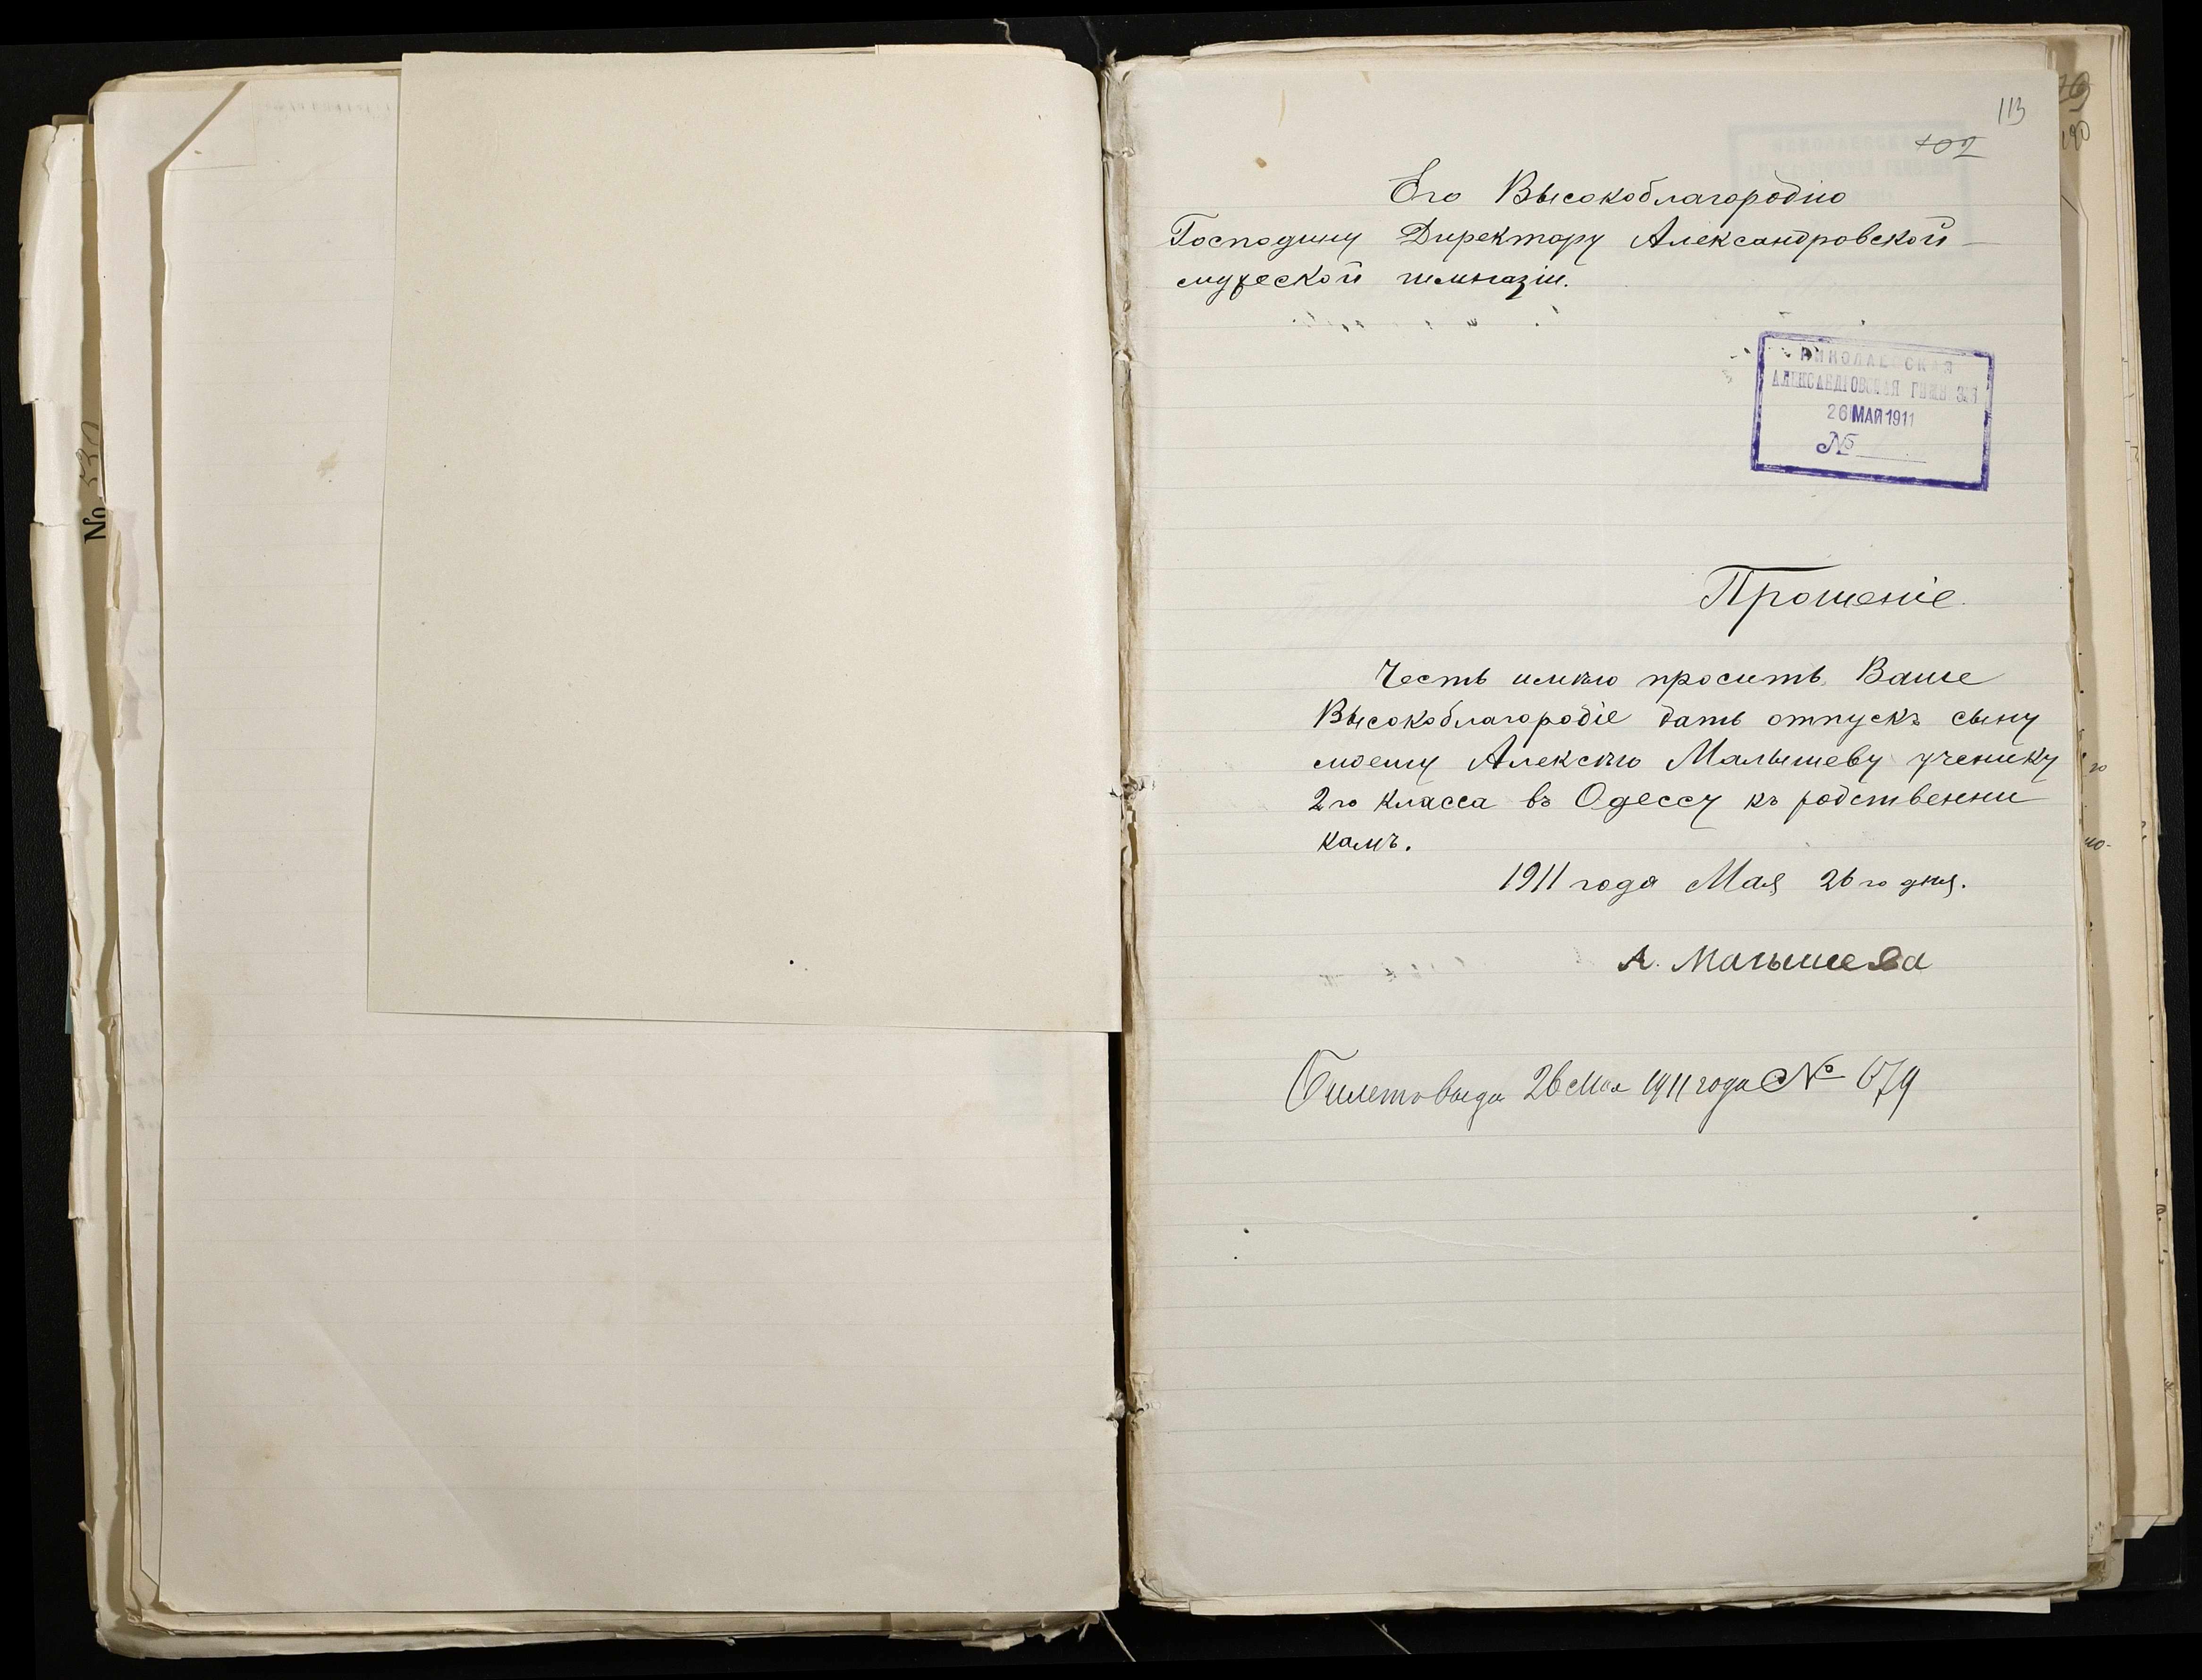 No 530
113
102
Его Высокоблагородію
Господину Директору Александровской
мужеской гимназіи.
НИКОЛАЕВСКАЯ
АЛЕКСАНДРОВСКАЯ ГИМНАЗІЯ
26 МАЯ 1911
№
Прошеніе.
Честь имѣю просить Ваше
Высокоблагородіе дать отпускъ сыну
моему Алексѣю Малышеву ученику
2го класса въ Одессу къ родственни
камъ.
1911 года Мая 26 го дня.
А. Малышева
Билетъ выдан 26 Мая 1911 года № 679